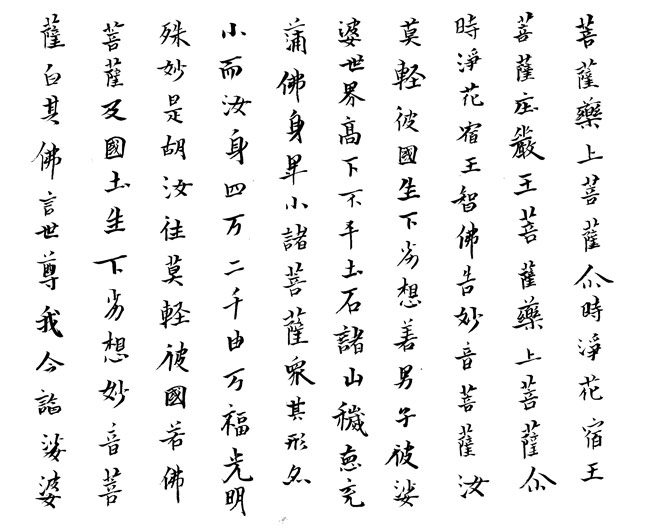 菩薩藥上菩薩尒時淨花宿王
菩薩庄嚴王菩薩藥上菩薩尒
時淨花宿王智佛告妙音菩薩汝
莫軽彼國生下劣想善男子彼娑
婆世界高下不平土石諸山穢悪充
蒲佛身卑小諸菩薩衆其形亦
小而汝身四万二千由万福光明
殊妙是胡汝往莫軽彼國若佛
菩薩及國土生下劣想妙音菩
薩白其佛言世尊我今詣娑婆